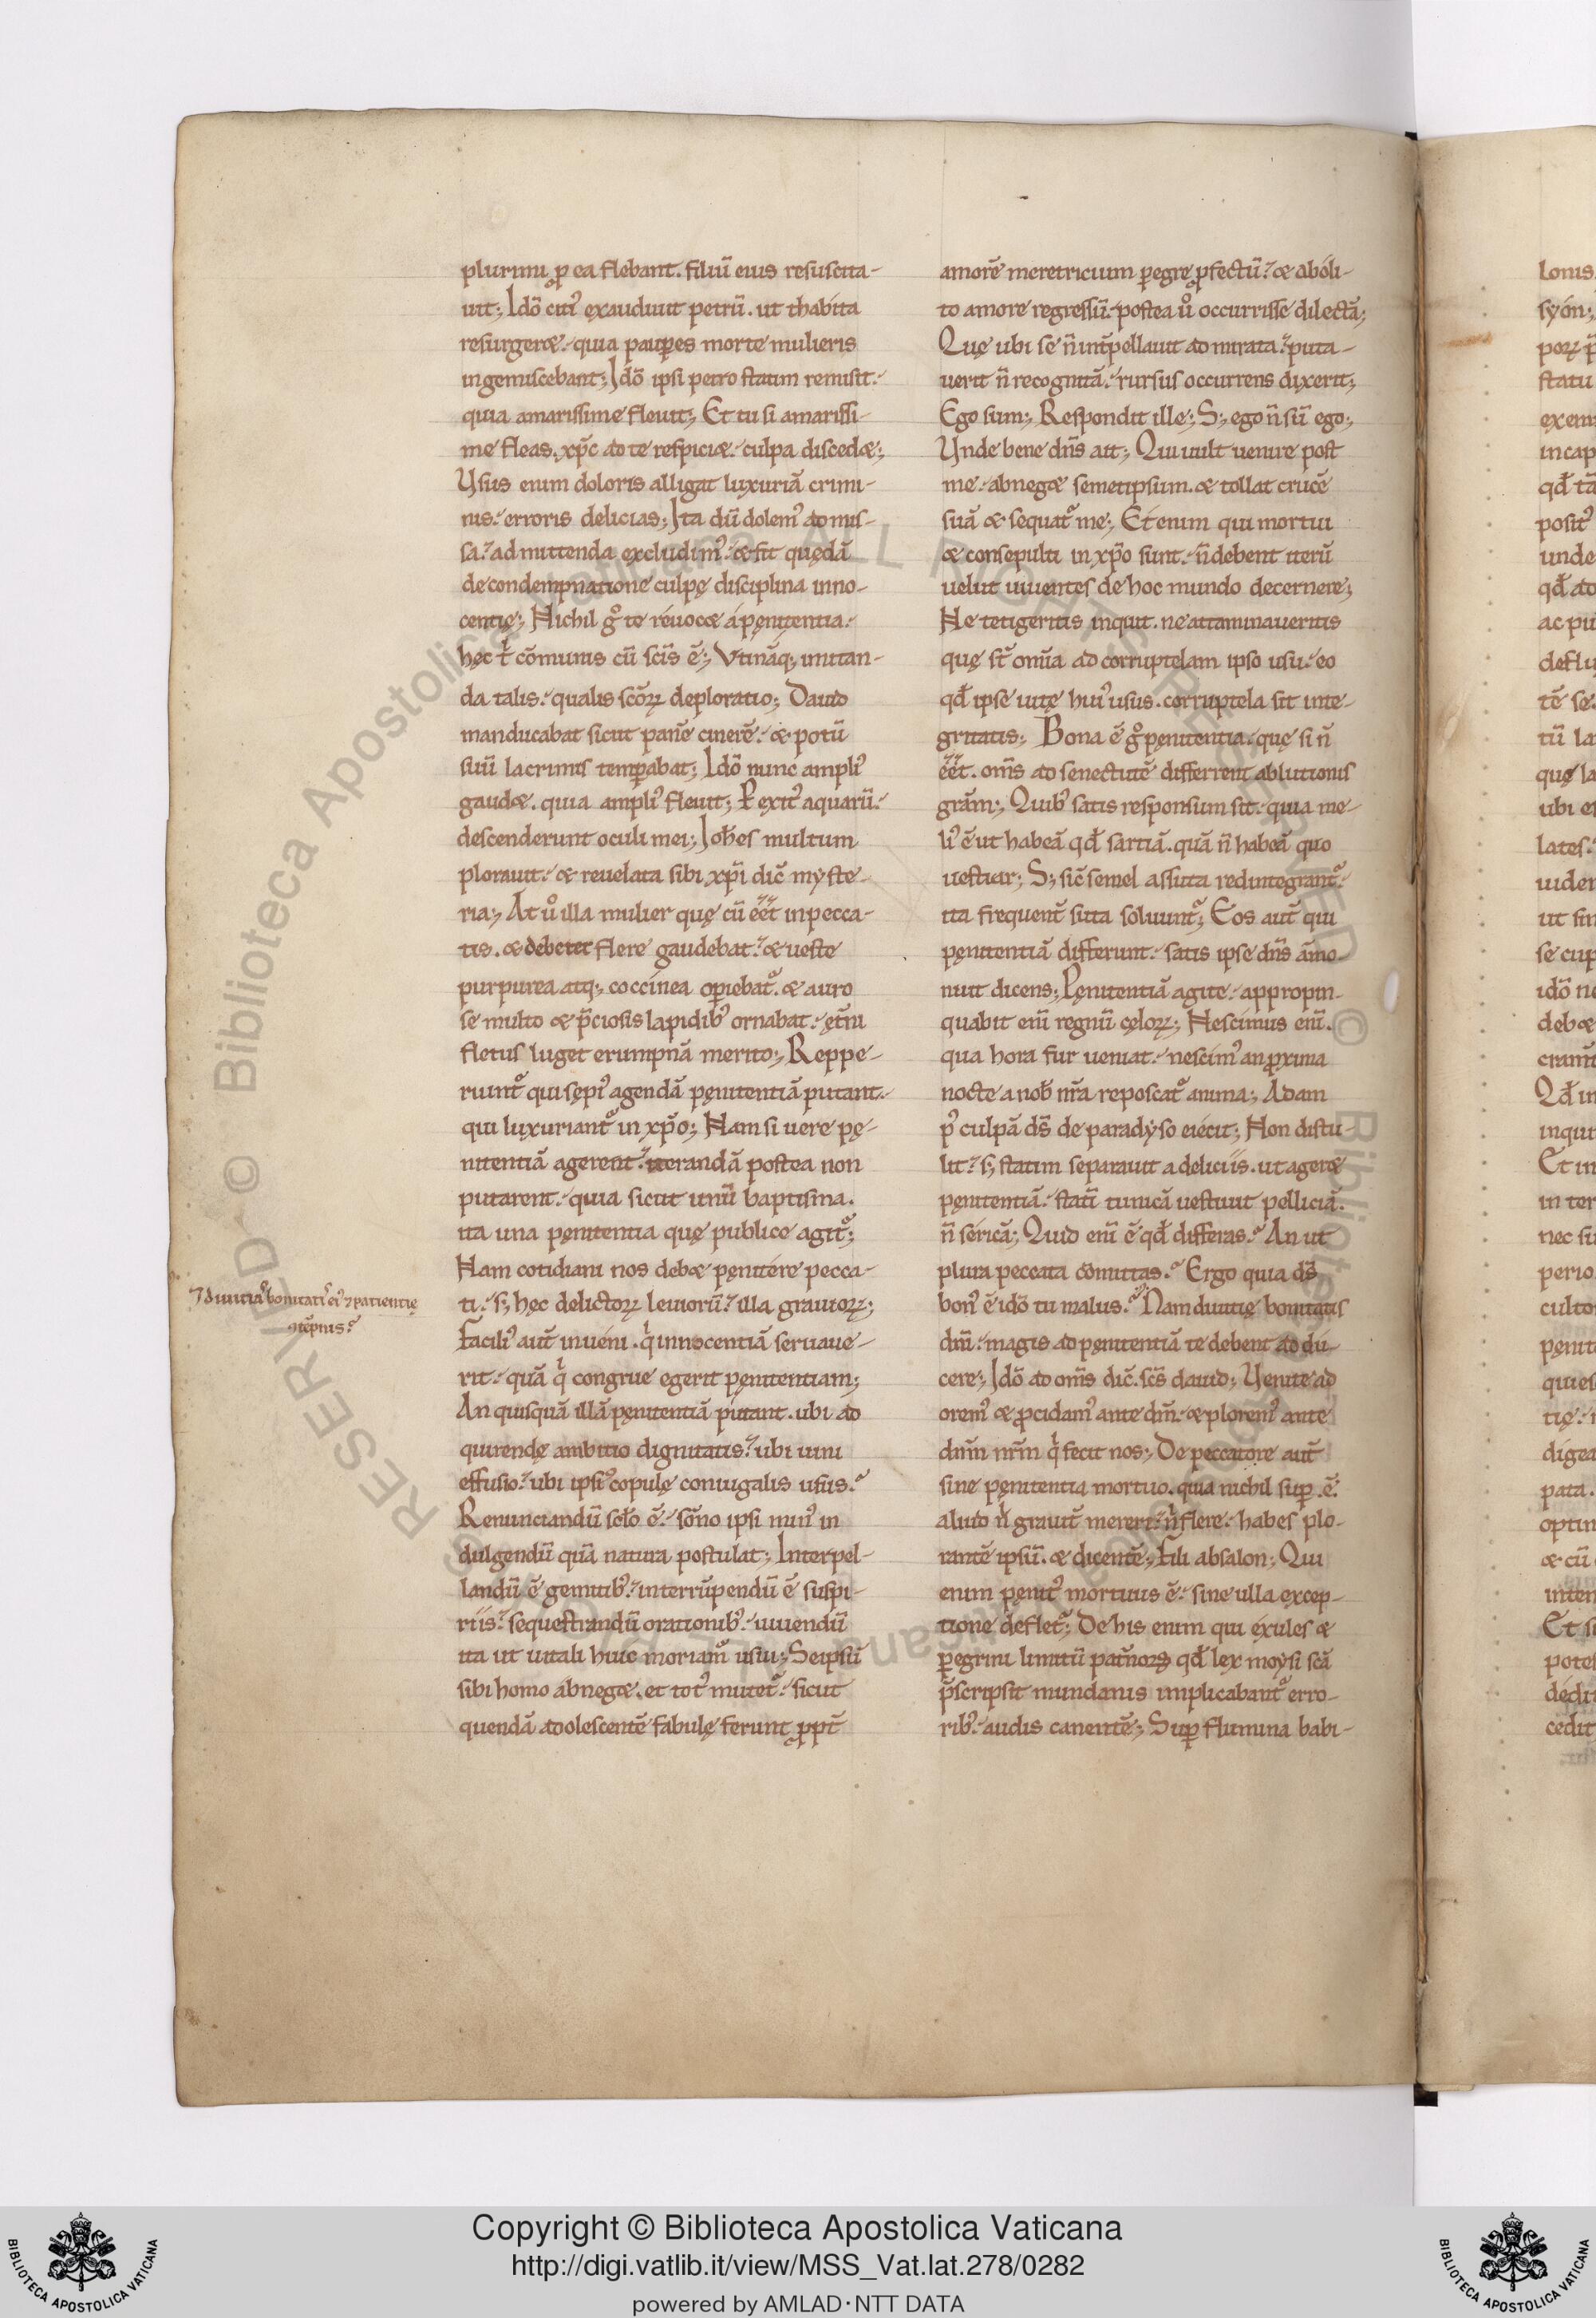 plurimi ꝓ ea flebant. filiũ eius resuscita-
uit; Idõ citiꝰ exaudiuit petrũ. ut thabita
resurgeræ. quia pauꝑes morte mulieris
ingemiscebant; Idõ ipsi petro statim remisit.
quia amarissime fleuit; Et tu si amarissi-
me fleas. xp̃c ad te respiciæ. culpa discedæ;
Usus enim doloris alligat luxuriã crimi-
nis. erroris delicias; Ita dũ dolemꝰ admis-
sa. admittenda excludimꝰ. & fit quędã
de condempnatione culpę disciplina inno-
centię; Nichil gͦ te réuocæ á pęnitentia.
hęc t̃ cõmunis cũ sc̃is ẽ; Vtinãq; imitan-
da talis. qualis sc̃oꝝ deploratio; Dauid
manducabat sicut panẽ cinerẽ. & potũ
suũ lacrimis temꝑabat; Idõ nunc ampliꝰ
gaudæ. quia ampliꝰ fleuit; Exitꝰ aquarũ.
descenderunt oculi mei; Ioħes multum
plorauit. & reuelata sibi xp̃i dic̃ myste-
ria; At uͦ illa mulier quę cũ ẽẽt in pecca-
tis. & deberet flere gaudebat. & ueste
purpurea atq; coccinea oꝑiebat᷑. & auro
se multo & p̃ciosis lapidibꝰ ornabat. ęt̃ni
fletus luget erumpnã merito; Reppe-
riunt᷑ qui sępiꝰ agendã pęnitentiã putant.
qui luxuriant᷑ in xp̃o; Nam si uere pę-
nitentiã agerent. iterandã postea non
putarent. quia sicut unũ baptisma.
ita una pęnitentia quę publice agit᷑;
Nam cotidiani nos debæ pęnitére pecca-
⁊ diuitiaꝝ bonitatiꝰ eiꝰ ⁊ patientię
ꝯtẽpnis?
ti. s; hęc delictoꝝ leuiorũ. illa grauioꝝ;
Faciliꝰ aut̃ inuéni. qͥ innocentiã seruaue-
rit. quã qͥ congrue egerit pęnitentiam;
An quisquã illã pęnitentiã putant. ubi ad
quirendę ambitio dignitatis. ubi uini
effusio. ubi ipsiꝰ copulę coniugalis usus?
Renunciandũ sc̃lo ẽ. sõno ipsi minꝰ in
dulgendũ quã natura postulat; Interpel-
landũ ẽ gemitibꝰ. interrũpendũ ẽ suspi-
riis. sequestrandũ orationibꝰ. uiuendũ
ita ut uitali huic moriam᷑ usui; Seipsũ
sibi homo ábnegæ. et totꝰ mutet᷑. sicut
quendã adolescentẽ fabulę ferunt ꝓpt̃
amorẽ meretricium ꝑegrę ꝓfectũ. & aboli-
to amore regressũ. postea uͦ occurrisse dilectã;
Quę ubi se ñ int̃pellauit admirata. puta-
uerit ñ recognitã. rursus occurrens dixerit;
Ego sum; Respondit ille; S; ego ñ sũ ego;
Unde bene dñs ait; Qui uult uenire post
me. abnegæ semetipsum. & tollat crucẽ
suã & sequat᷑ me; Etenim qui mortui
& consepulti in xp̃o sunt. ñ debent iterũ
uelut uiuentes de hoc mundo decernere;
Ne tetigeritis inquit. ne attaminaueritis
quę st̃ om̃ia ad corruptelam ipso usu. eo
qđ ipse uitę huiꝰ usus. corruptela sit inte-
gritatis; Bona ẽ gͦ pęnitentia. quę si ñ
ẽẽt. om̃s ad senectutẽ differrent ablutionis
grãm; Quibꝰ satis responsum sit. quia me-
liꝰ ẽ ut habeã qđ sartiã. quã ñ habeã quo
uestiar; S; sic̃ semel assuta redintegrant᷑.
ita frequent̃ suta soluunt᷑; Eos aut̃ qui
pęnitentiã differunt. satis ipse dñs ãmo-
nuit dicens; Pęnitentiã agite. appropin-
quabit enĩ regnũ cęloꝝ; Nescimus enĩ.
qua hora fur ueniat. nescimꝰ an ꝓxima
nocte a nob̃ nr̃a reposcat᷑ anima; Adam
pꝰ culpã ds̃ de paradýso eiécit; Non distu-
lit. s; statim separauit a deliciis. ut ageræ
pęnitentiã. statĩ tunicã uestiuit pelliciã.
ñ séricã; Quid enĩ ẽ qđ differas? An ut
plura peccata cõmittas? Ergo quia ds̃
bonꝰ ẽ idõ tu malus? Nam diuitię bonitatis
dñi. magis ad pęnitentiã te debent addu-
cere; Idõ ad om̃s dic̃. sc̃s dauid; Uenite ad
oremꝰ & ꝓcidamꝰ ante dm̃. & ploremꝰ ante
dnm̃ nr̃m qͥ fecit nos; De peccatore aut̃
sine pęnitentia mortuo. quia nichil suꝑ.ẽ.
aliud nͥ grauit̃ mereri. nͥ flere. habes plo-
rantẽ ipsũ. & dicentẽ; Fili absalon; Qui
enim pęnitꝰ mortuus ẽ. sine ulla excep-
tione deflet᷑; De his enim qui éxules &
ꝑegrini limitũ pat̃noꝝ qđ lex moýsi sc̃a
p̃scripsit mundanis implicabant᷑ erro-
ribꝰ. audis canentẽ; Suꝑ flumina babi-
Copyright © Biblioteca Apostolica Vaticana
http://digi.vatlib.it/view/MSS_Vat.lat.278/0282
powered by AMLAD·NTT DATA
BIBLIOTECA APOSTOLICA VATICANA
BIBLIOTECA APOSTOLICA VATICANA